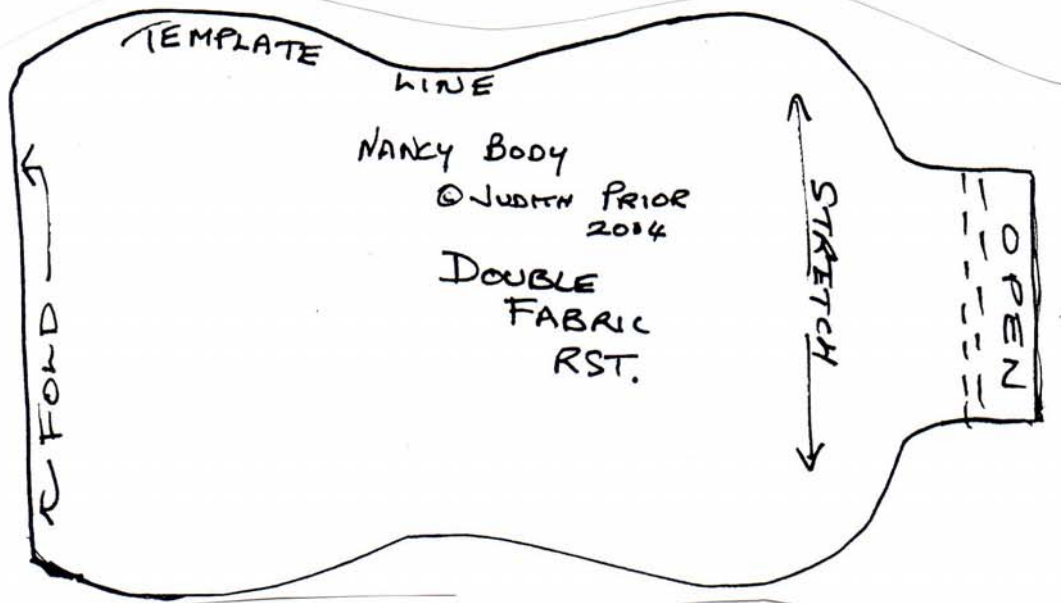 TEMPLATE
LINE
NANCY BODY
© JUDITH PRIOR
2004
DOUBLE
FABRIC
RST.
FOLD
STRETCH
OPEN